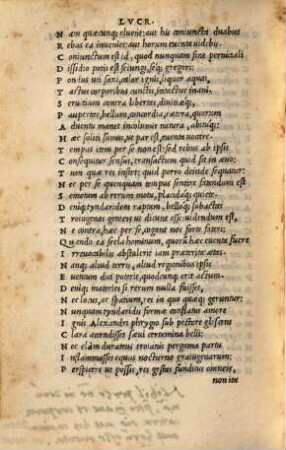 LVCR.
Nam quæcunq; cluent; aut his coniuncta duabus
Rebus ea inuenies; aut horum euenta uidebis.
Coniunctum est id, quod nunquam sine perniciali
Dissidio potis est seiungi, seq; gregari:
Pondus uti saxi, calor ignis, liquor aquai,
Tactus corporibus cunctis, intactus inani.
Seruitium contra libertas, diuitiæq;,
Paupertas, bellum, concordia, cætera, quorum
Aduentu manet incolumis natura, abituq;:
Hæc soliti sumus, ut par est, euenta uocare.
Tempus item per se non est: sed rebus ab ipsis
Consequitur sensus, transactum quid sit in æuo:
Tum quæ res instet, quid porro deinde sequatur:
Nec per se quenquam tempus sentire fatendum est
Semotum ab rerum motu, placidaq; quiete.
Deniq; tyndaridem raptam, belloq; subactas
Troiugenas gentes ut dicunt esse; uidendum est,
Ne contra hæc per se, cogant nos forte fateri:
Quando ea sæcla hominum, quorum hæc euenta fuere
Irreuocabilis abstulerit iam præterita ætas.
Nanq; aliud terris, aliud regionibus ipsis
Euentum dici poterit, quodcunq; erit actum.
Deniq; materies si rerum nulla fuisset,
Nec locus, ac spatium, res in quo quæq; geruntur:
Nunquam tyndaridis formæ conflatus amore
Ignis Alexandri phrygio sub pectore gliscens
Clara accendisset sæui certamina belli:
Nec clam durateus troianis pergama partu
Inflammasset equus nocturno graiugenarum:
Perspicere ut possis, res gestas funditus omneis,
non ita